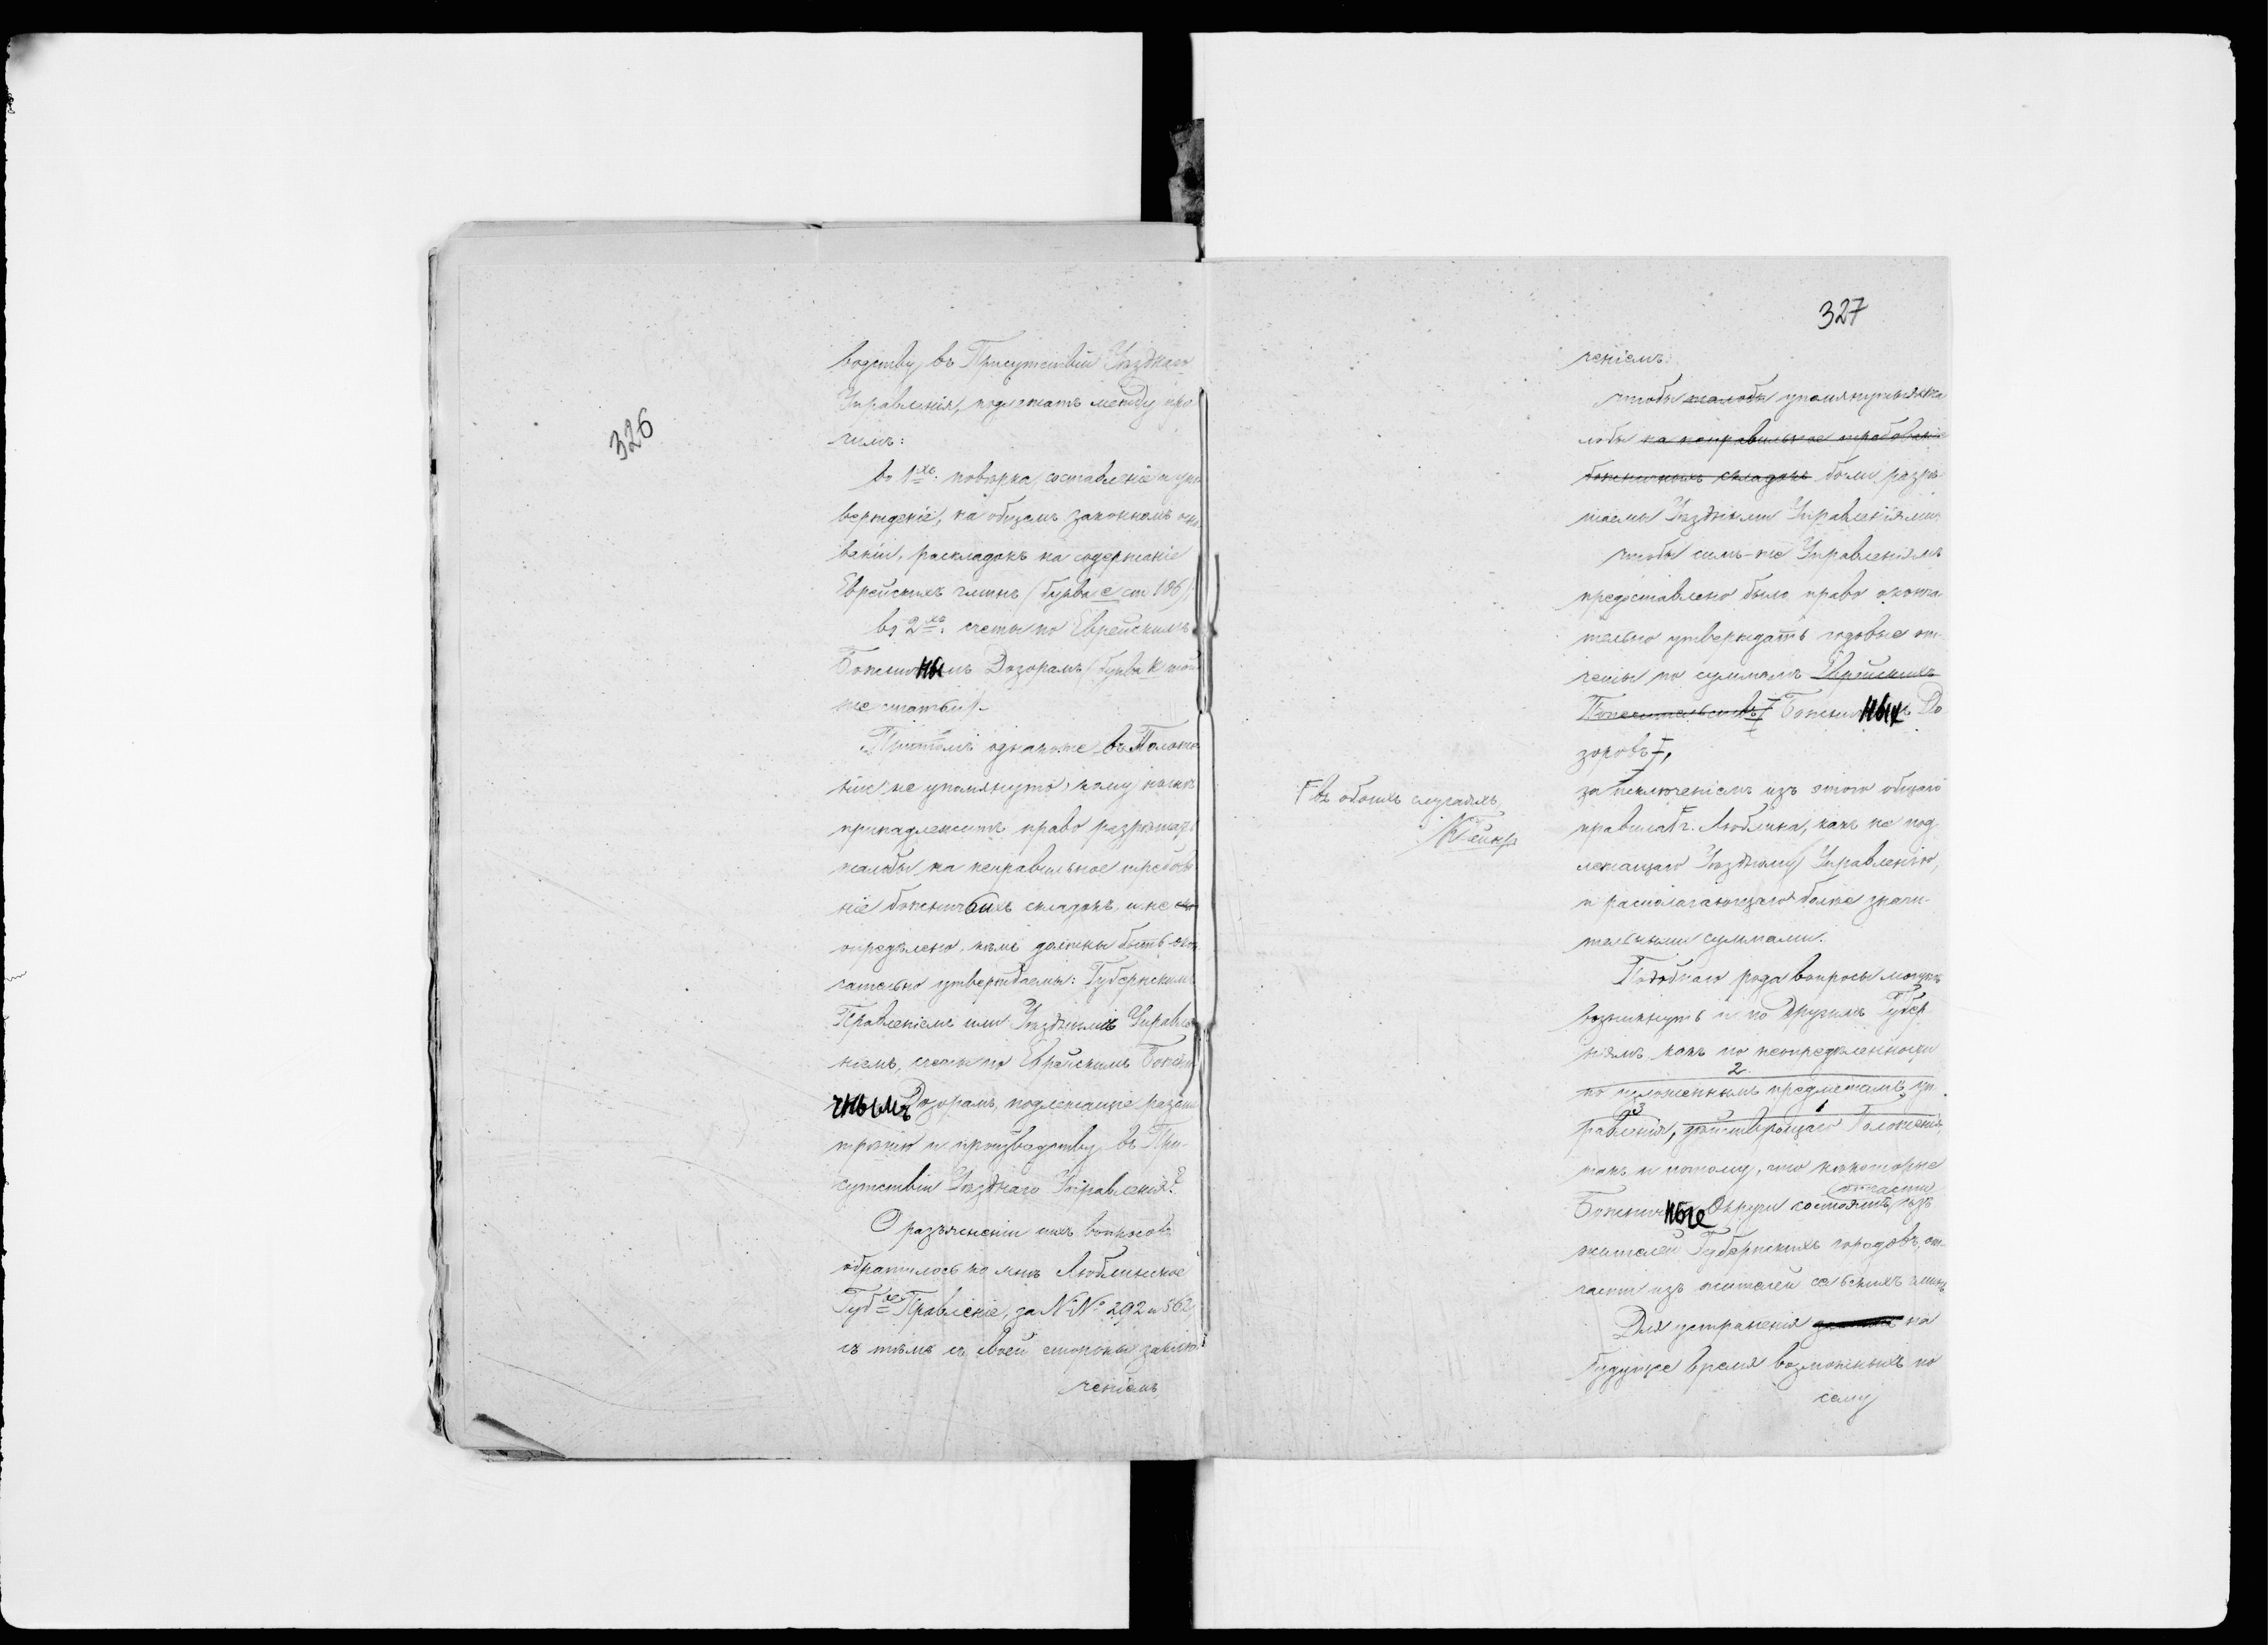 326
водству, въ Присутствіи Уѣзднаго
Управленія, подлежатъ между про
чимъ:
во 1хъ: повѣрка, составленіе и ут
вержденіе, на общемъ законномъ осно
ваніи, раскладокъ на содержаніе
Еврейскихъ гминъ (буква е ст 186);
во 2хъ: счеты по Еврейскимъ
Божничнымъ Дозорамъ (буква к той
же статьи).
При томъ однакоже въ Положе
ніи не упомянуто, кому именно
принадлежитъ право разрѣшать
жалобы на неправильное требова
ніе божничныхъ складокъ, и не
опредѣлено, кѣмъ должны быть окон
чательно утверждаемы: Губернскимъ
Правленіемъ или Уѣзднымъ Управле
ніемъ, счеты по Еврейскимъ Божни
чнымъ Дозорамъ, подлежащіе разсмо
трѣнію и производству въ При-
сутствіи Уѣзднаго Управленія?
О разъясненіи сихъ вопросовъ
обратилось ко мнѣ Люблинское
Губ.ое Правленіе, за №№ 292 и 562,
съ тѣмъ съ своей стороны заклю
ченіемъ
327
ченіемъ:
чтобы жалобы упомянутыя жа
лобы на неправильное требованіе
божничныхъ складокъ были разрѣ
шаемы Уѣздными Управленіями;
чтобы симъ-же Управленіямъ
предоставлено было право оконча
тельно утверждать годовые от-
четы по суммамъ Еврейскихъ
Попечительствъ Божничныхъ До
зоровъ,
за исключеніемъ изъ этого общаго
правила г. Люблина, какъ не под
лежащаго Уѣздному Управленію,
и располагающаго болѣе значи-
тельными суммами.
Г въ обоихъ случаяхъ,
Подобнаго рода вопросы могутъ
возникнуть и по другимъ Губер
ніямъ, какъ по неопредѣленности
2
по изложеннымъ предметамъ уп
3 1
равленія, дѣйствующаго Положенія,
такъ и потому, что нѣкоторые
отчасти
Божничные Округи состоятъ изъ
жителей Губернскихъ городовъ, от-
части изъ жителей сельскихъ гминъ.
Для устраненія на
будущее время возможныхъ по
сему